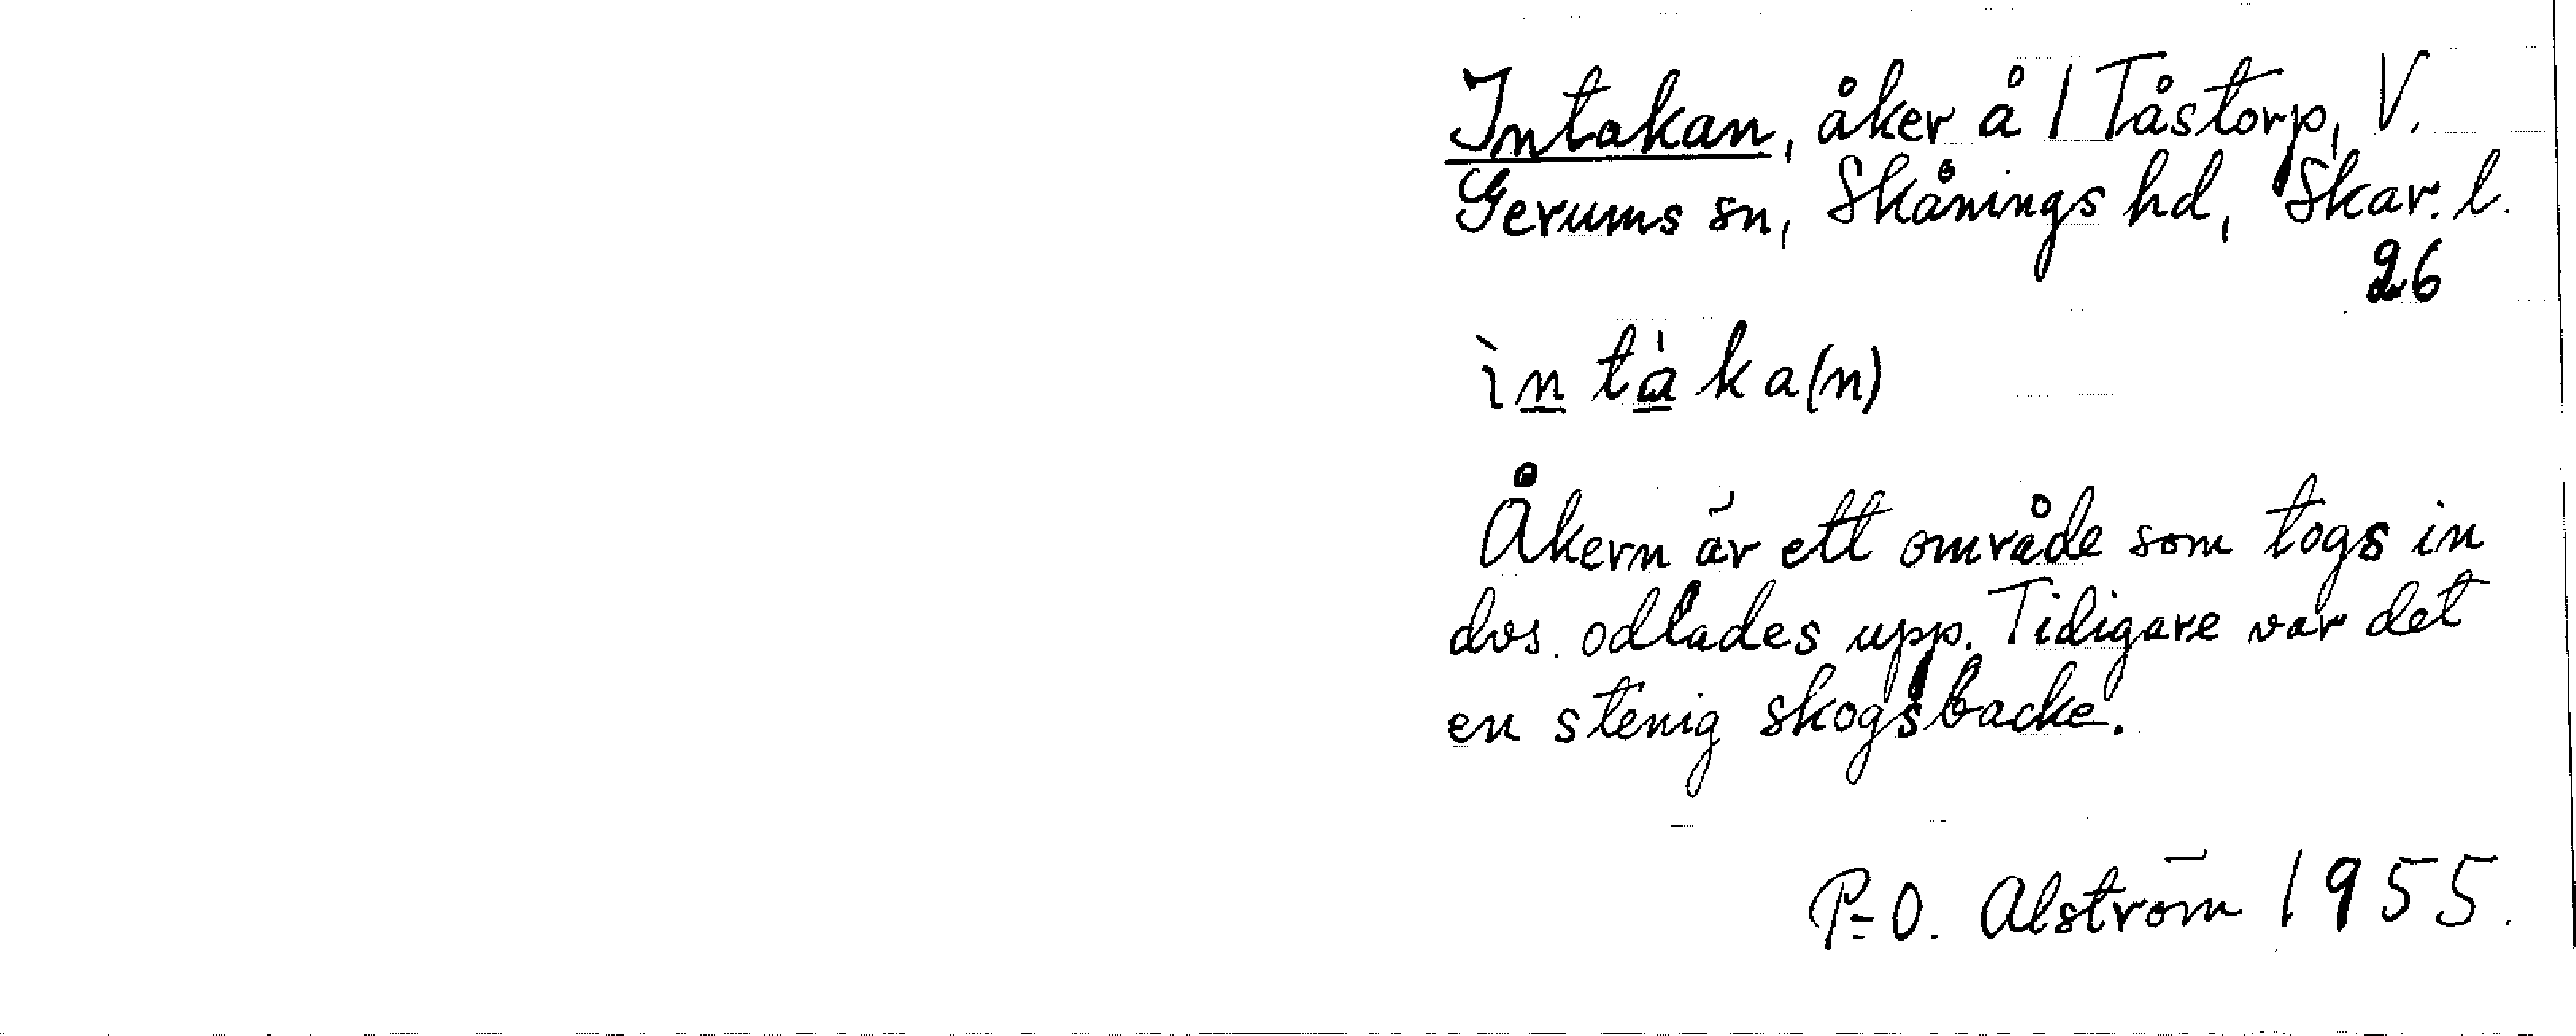 Intakan, åker å 1 Tåstorp, V.
Gerums sn, Skånings hd, Skar. l.
26
ìn tà ka(n)
Åkern är ett område som togs in
dvs. odlades upp. Tidigare var det
en stenig skogsbacke.
P-O. Alström 1955.